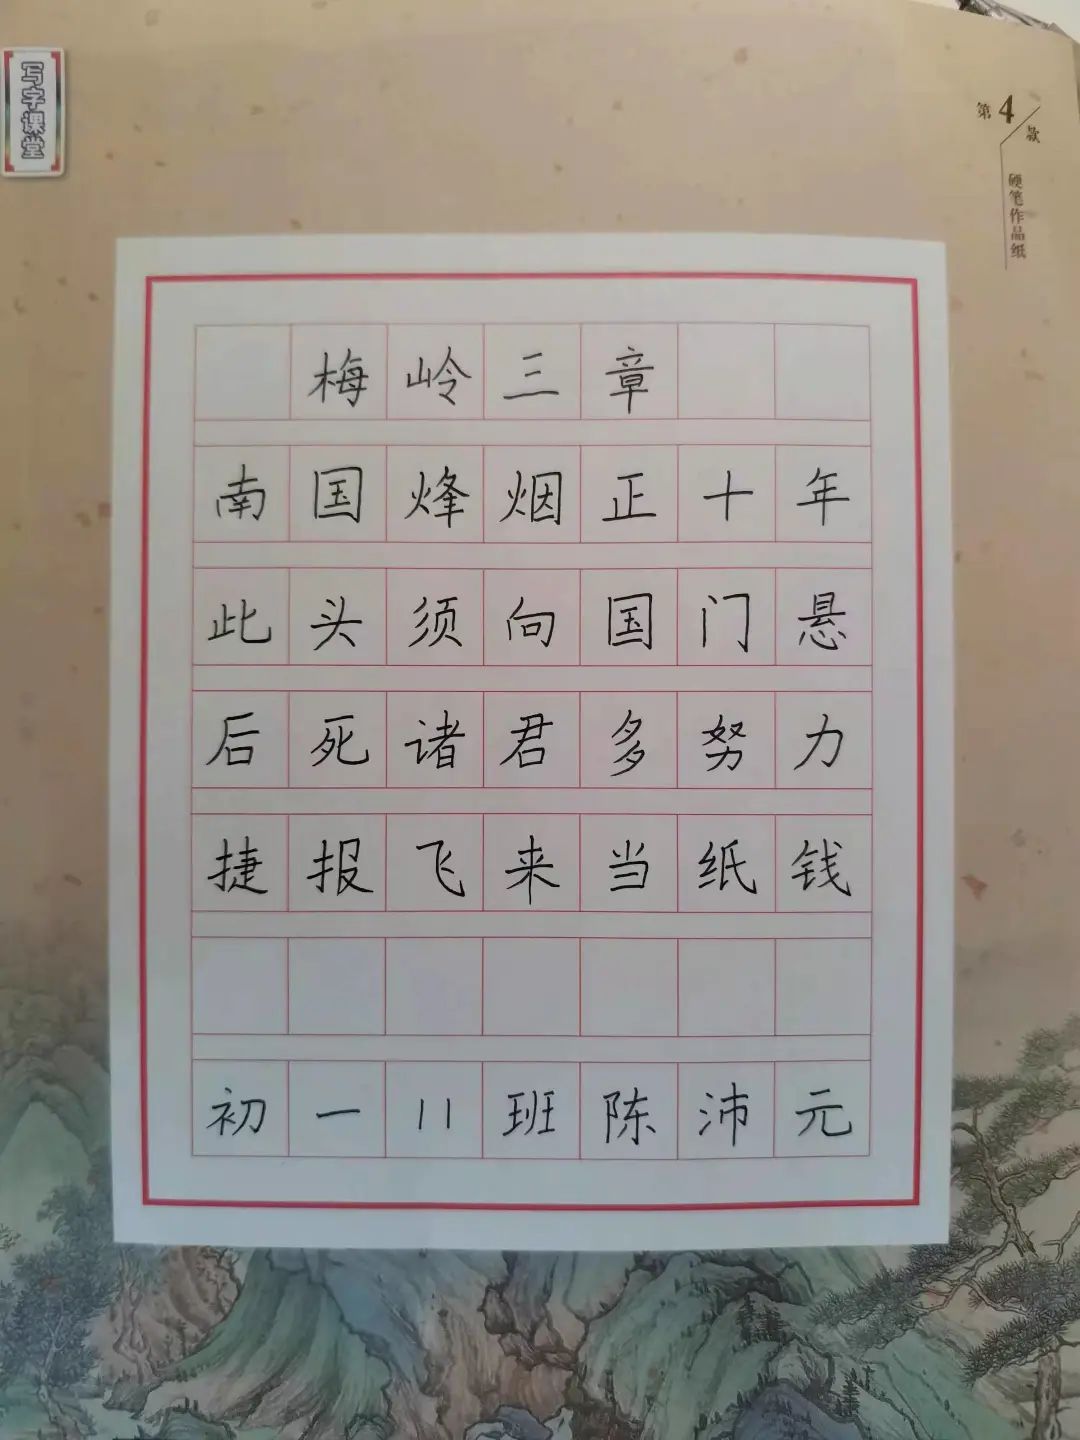 写字课堂
第4款
硬笔作品纸
梅岭三章
南国烽烟正十年
此头须向国门悬
后死诸君多努力
捷报飞来当纸钱
初一11班陈沛元